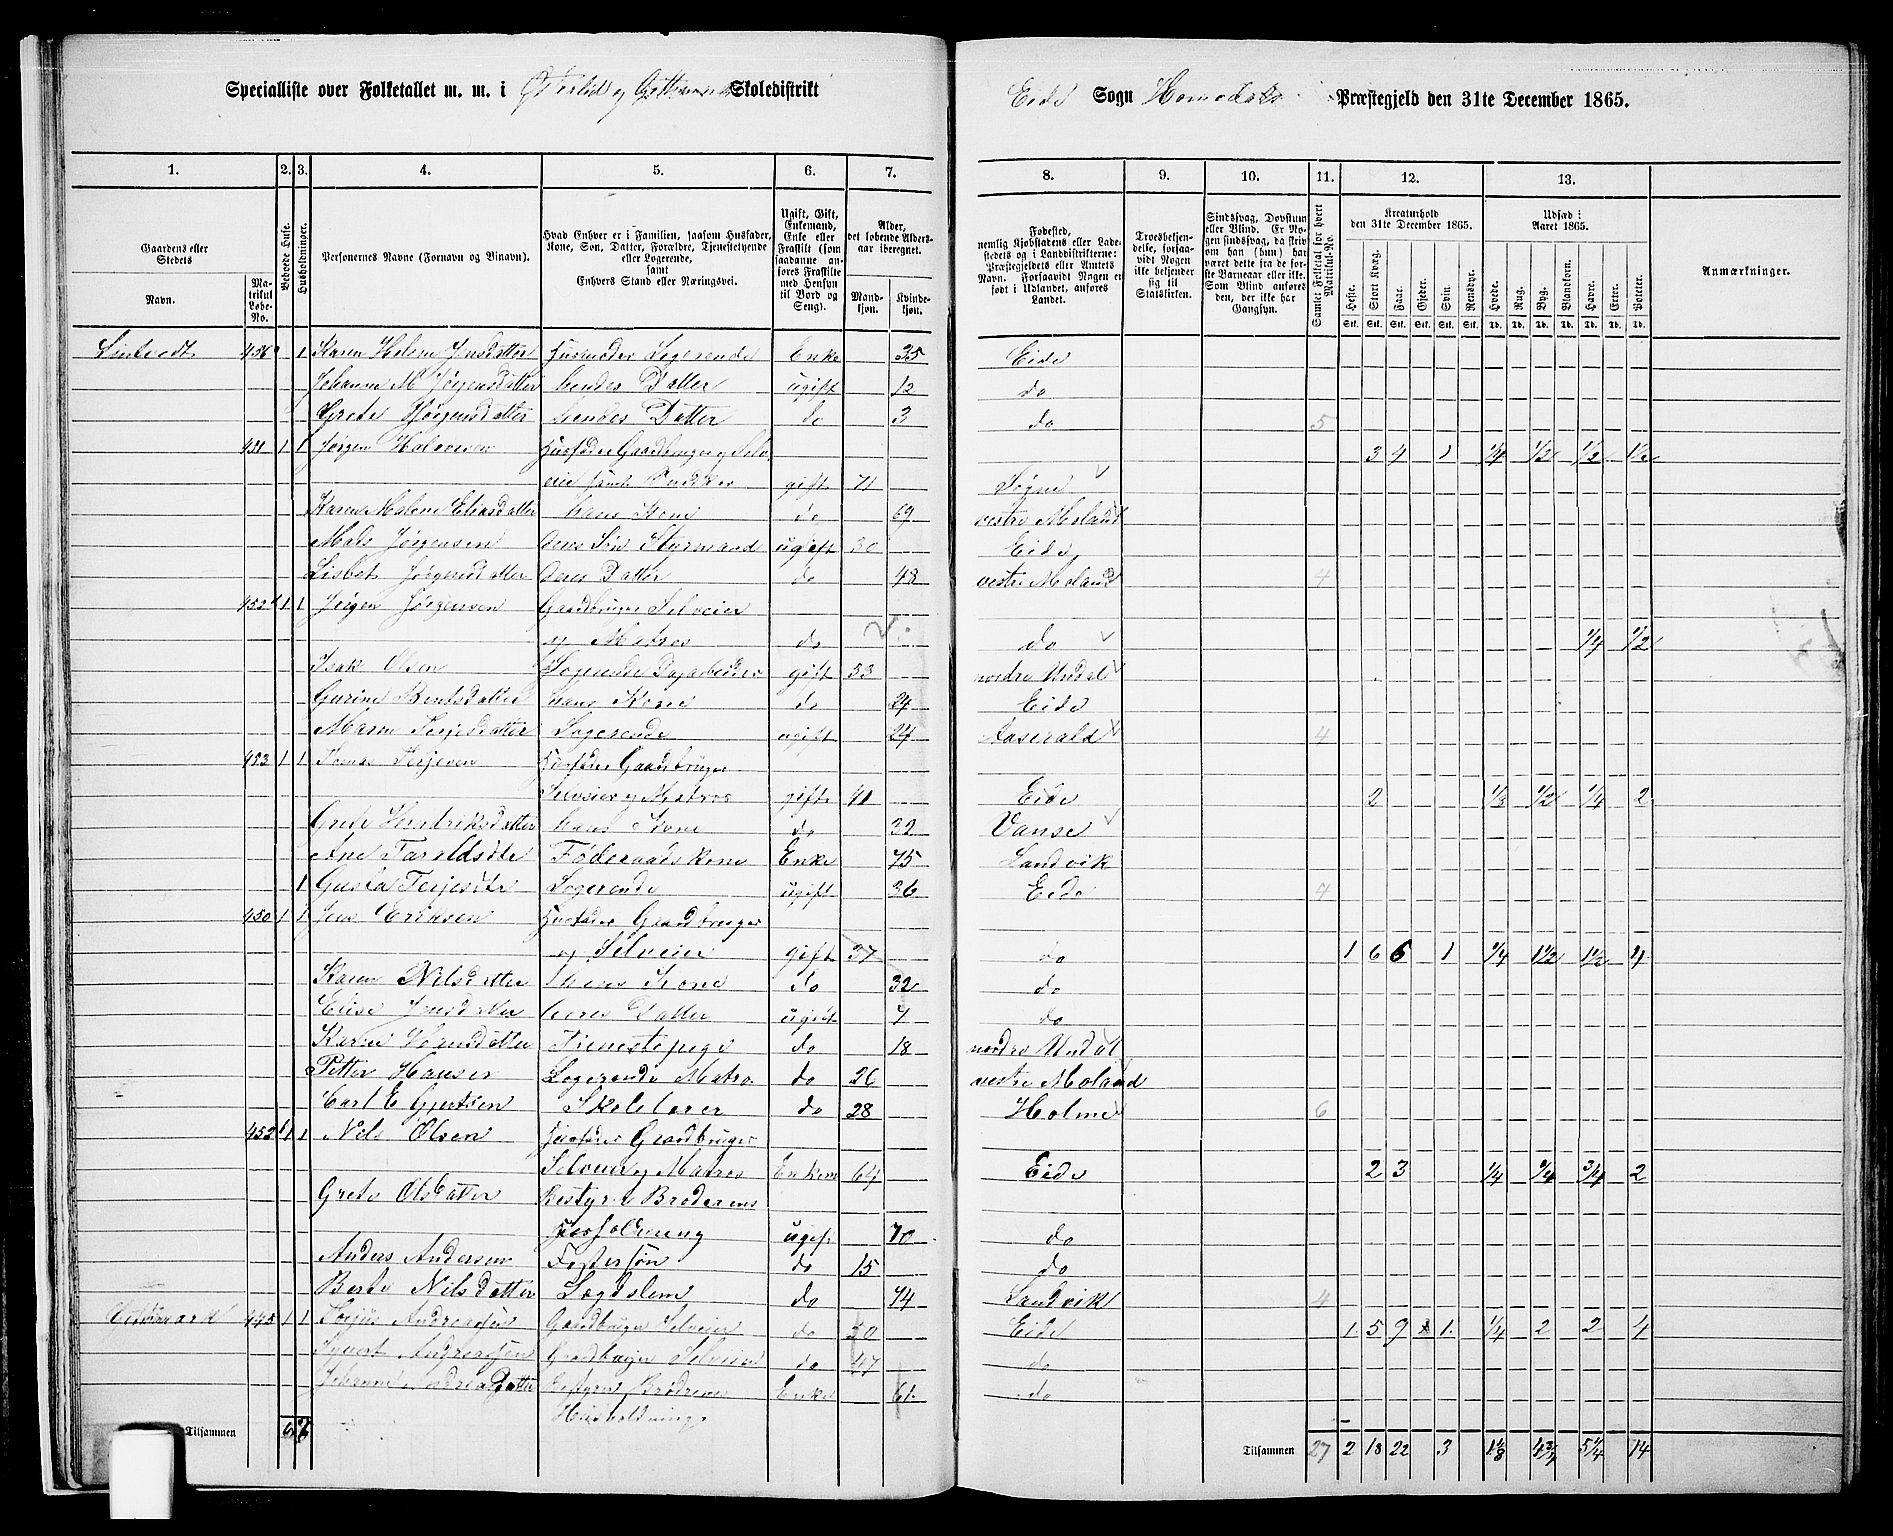 Specialliste over Folketallet m. m. i og Skoledistrikt
Eide Sogn Homedals Præstegjeld den 31te December 1865.
1. 2. 3. 4. 5. 6. 7. 8. 9. 10. 11. 12. 13.
Gaardens eller Stedets
Navn.
Matrikul Løbe-No.
Beboede Huse.
Husholdninger.
Personernes Navne (Fornavn og Tilnavn).
Hvad Enhver er i Familien, saasom Husfader, Kone, Søn, Datter, Forældre, Tjenestetyende eller Logerende, samt Enhvers Stand eller Næringsvei.
Ugift, Gift, Enkemand, Enke eller Fraskilt (som saadanne anføres Fraskilte med Hensyn til Bord og Seng).
Alder, det løbende Aldersaar iberegnet.
Mandkjøn.
Kvindekjøn.
Fødested, nemlig Kjøbstadens eller Ladestedets og i Landdistrikterne: Præstegjeldets eller Amtets Navn. Forsaavidt Nogen er født i Udlandet, anføres Landet.
Troesbekjendelse, forsaavidt Nogen ikke bekjender sig til Statskirken.
Sindssvag, Døvstum eller Blind. Er Nogen sindssvag, da skrives om han (hun) har været dette fra de første Barneaar eller ikke. Som Blind anføres den, der ikke har Gangsyn.
Samlet Folketal for hvert Matrikul-No.
Kreaturhold den 31te December 1865.
Heste. Stort Kvæg. Faar. Gjeder. Svin. Rensdyr.
Udsæd i Aaret 1865.
Hvede. Rug. Byg. Blandkorn. Havre. Erter. Poteter.
Stk. Stk. Stk. Stk. Stk. Stk. Td. Td. Td. Td. Td. Td. Td.
Anmærkninger.
1 Karen Helene Jensdatter Husmoder Logerende Enke 35 Eide
Johanne M Jørgensdatter hendes Datter ugift 12 do
Grete Jørgensdatter hendes Datter do 3 do 5
451 1 1 Jørgen Halvorsen Husfader Gaardbruger og Selv 3 4 1 1/4 1/2 1/2 1 1/2
eier samt gift 71 Søgne
Karen Malene Eliasdatter hans Kone do 69 vestre Moland
Mads Jørgensen deres Søn Styrmand ugift 30 Eide
Lisbet Jørgensdatter deres Datter do 48 vestre Moland 4
452 1 1 Jørgen Jørgensen Gaardbruger Selveier
og Matros do do 1/4 1/2
Isak Olsen Logerende Dagarbeider gift 53 nordre Undal
Gurine Berntsdatter hans Kone do 24 Eide
Maren Terjesdatter Logerende ugift 24 Aaserald 4
453 1 1 Terjesen Husfader Gaardbruger
Selveier og Matros gift 41 Eide 2 1/8 1/2 1/4 2
Grete Hendriksdatter hans Kone do 32 Vanse
Ane Taraldsdtr Føderaadskone Enke 75 Landvik
1 Gusta Terjesdtr Logerende ugift 36 Eide 4
450 1 1 Jens Eriksen Husfader Gaardbruger
og Selveier gift 37 do 1 6 6 1 1/4 1 1/2 1 1/2 4
Karen Nilsdatter hans Kone do 32 do
Elise Jensdatter deres Datter ugift 7 do
Karen Hansdatter Tjenestepige do 18 nordre Undal
Petter Hansen Logerende Matro. do 26 vestre Moland
Carl E Gjertsen Skolelærer do 28 Holme 6
452 1 1 Nils Olsen Husfader Gaardbruger
Selveier og Matros Enkem 64 Eide 2 3 1/4 3/4 2
Grete Olsdatter Bestyrer Broderens
Husholdning ugift 70 do
Anders Andersen Fostersøn do 15 do
Berte Nilsdatter Lægdslem do 74 Landvik 4
445 1 1 Andreassen Gaardbruger Selveier do 50 Eide 1 5 9 1 1/4 2 2 4
Andreassen Gaardbruger Selveier do 47 do
Johanne Andreasdatter Bestyrer Brødrenes Enke 61 do
Husholdning
Tilsammen 6
Tilsammen 27 2 18 22 3 1 1/8 4 3/4 5 1/4 14